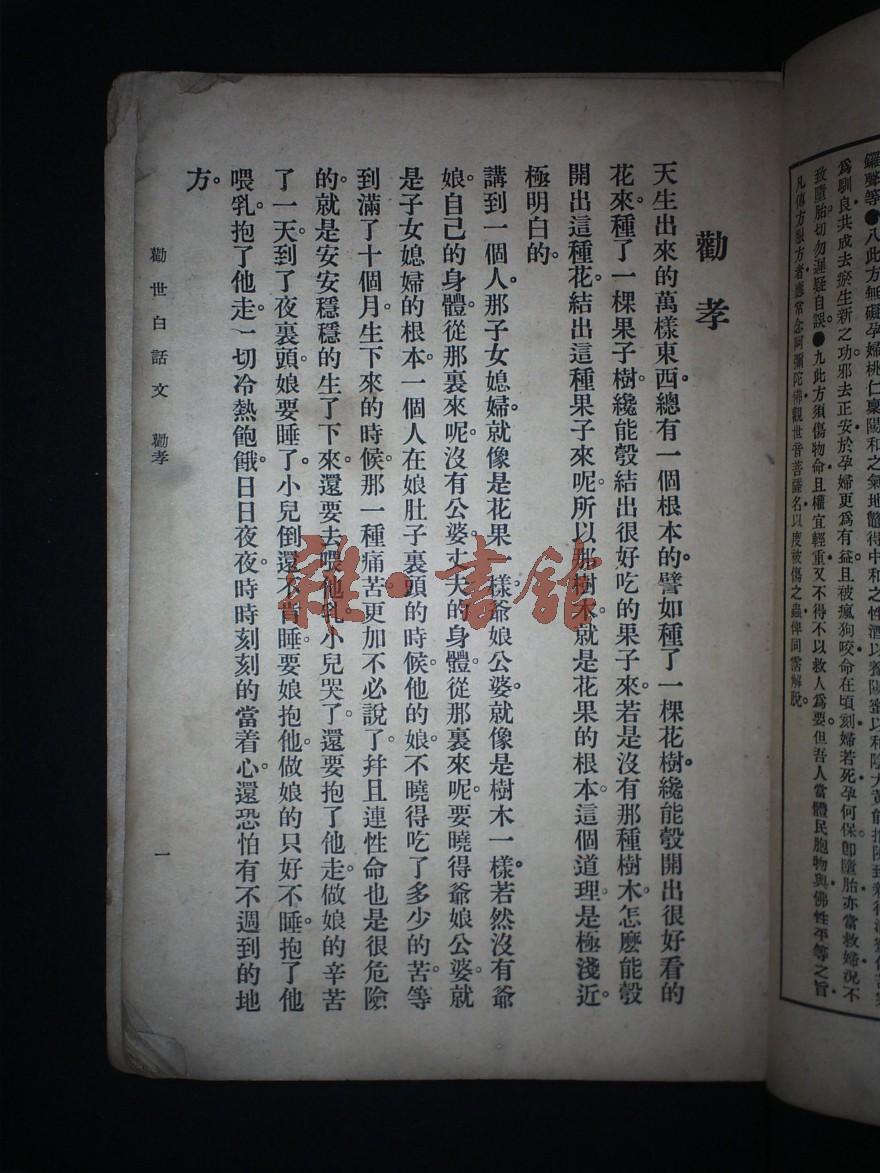 鑼聲等●八此方無礙孕婦桃仁稟陽和之氣地鱉得中和之性酒以發陽蜜以和陰大黃
爲馴良共成去瘀生新之功。邪去正安於孕婦更爲有益。且被瘋狗咬命在頃刻婦若死孕何保。卽墮胎亦當救婦況不
致墮胎切勿遲疑自誤。●九此方須傷物命且權宜輕重又不得不以救人爲要。但吾人當體民胞物與佛性平等之旨
凡傳方製方者應常念阿彌陀佛觀世音菩薩名以度被傷之蟲俾同霑解脫。
勸孝
天生出來的萬樣東西。總有一個根本的。譬如種了一棵花樹。纔能彀開出很好看的
花來。種了一棵果子樹。纔能彀結出很好吃的果子來。若是沒有那種樹木。怎麽能彀
開出這種花。結出這種果子來呢。所以那樹木。就是花果的根本。這個道理。是極淺近。
極明白的。
講到一個人。那子女媳婦。就像是花果一樣。爺娘公婆。就像是樹木一樣。若然沒有爺
娘。自己的身體。從那裏來呢。沒有公婆。丈夫的身體。從那裏來呢。要曉得爺娘公婆。就
是子女媳婦的根本。一個人在娘肚子裏頭的時候。他的娘。不曉得吃了多少的苦。等
到滿了十個月。生下來的時候。那一種痛苦。更加不必說了。幷且連性命也是很危險
的。就是安安穩穩的生了下來。還要去喂他乳。小兒哭了。還要抱了他走。做娘的辛苦
了一天。到了夜裏頭。娘要睡了。小兒倒還不肯睡。要娘抱他。做娘的只好不睡。抱了他
喂乳。抱了他走。一切冷熱飽餓。日日夜夜。時時刻刻的當着心。還恐怕有不週到的地
方。
勸世白話文 勸孝 一
雜·書舘